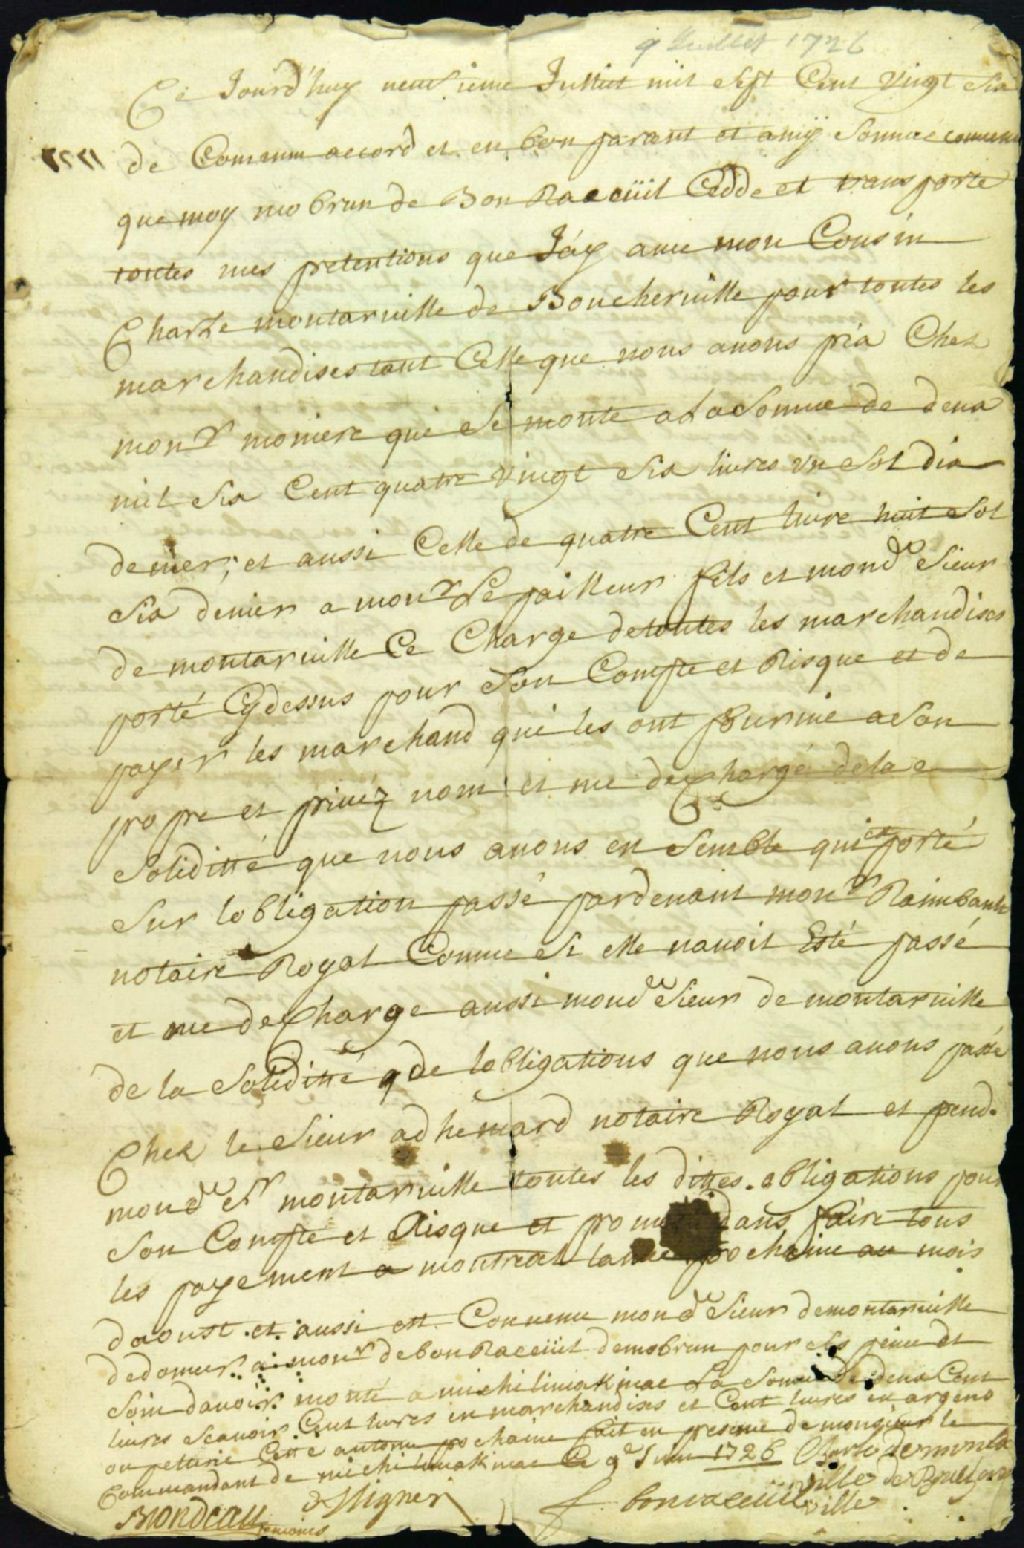 9 Juillet 1726
Ce Jourd'huy neufieme Julliet mil sept Cent vingt six
de Commun accord et en bon parant et amÿ somme convenu
que moy mobrun de Bon Raceüil Cedde et transporte
toutes mes pretentions que Jáy avec mon Cousin
Charle montarville de Boucherville pour toutes les
marchandises tant Celle que nous avons pria Chez
monr moniere qui se monte a La somme de deux
mil six Cent quatre vingt six livres un sol dix
denier, et aussi Celle de quatre Cent livre huit sol
six denier a monr Le pailleur fils et mond sieur
de montarville Ce Charge de toutes les marchandises
porté Cy dessus pour son Compte et Risque et de
payer les marchand qui les ont fournie a son
propre et privéz nom et me decharge de la
soliditté que nous avons en semble qui est porté
sur lobligation passé pardevant monr Raimbault
notaire Royal Comme si elle navoit Esté passé
et me decharge aussi mond sieur de montarville
de la soliditté de lobligations que nous avons passé
Chez le sieur adhemard notaire Royal et prend
mond sr montarville toutes les dittes obligations pour
son Compte et Risque et dans faire tous
les payement a montreal lanné prochaine au mois
daoust et aussi est Convenu mond sieur demontarville
dedonner a monr debonRaceüil demobrun pour ses peine et
soin davoir monté a michilimakinac La somme de deux Cent
livres scavoir Cent livres en marchandises et Cent livres en argent
ou peltrie Cette autonne prochaine fait en presence de monsieur le
Commandant de michilimakinac Ce 9 1726 Charle demonta
ville de Boucher
ville
bonraceüil